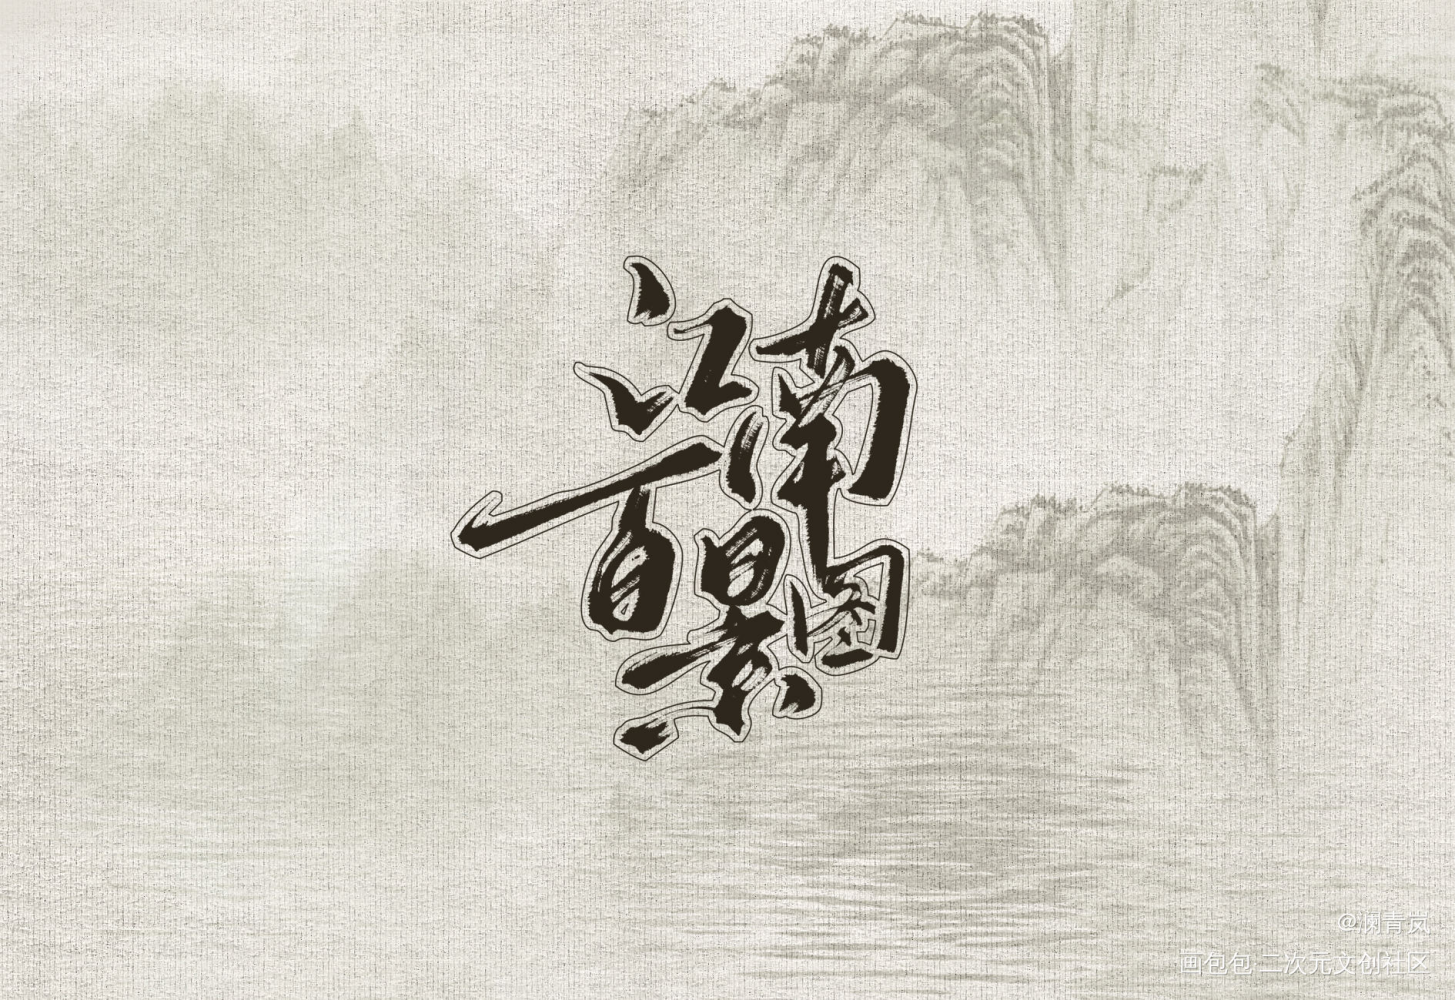 江南
百景图
@澜青岚
画包包 二次元文创社区